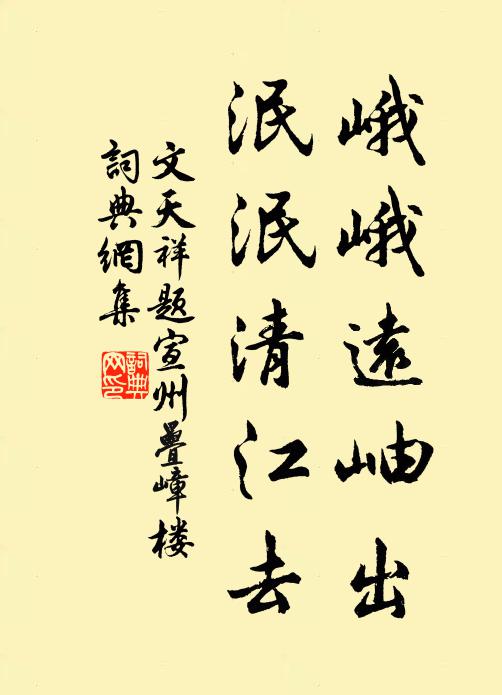 峨峨遠岫出
泯泯清江去
文天祥题宣州疊嶂楼
詞典網集
詞典
网印